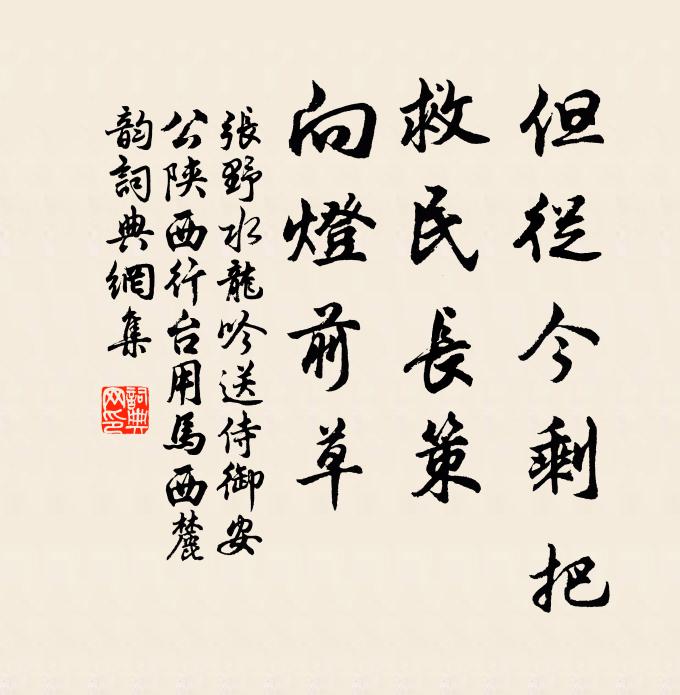 但從今剩把
救民長策
向燈前草
張野水龍吟送侍御安
公陕西行台用馬西麓
韵詞典網集
詞典
网印